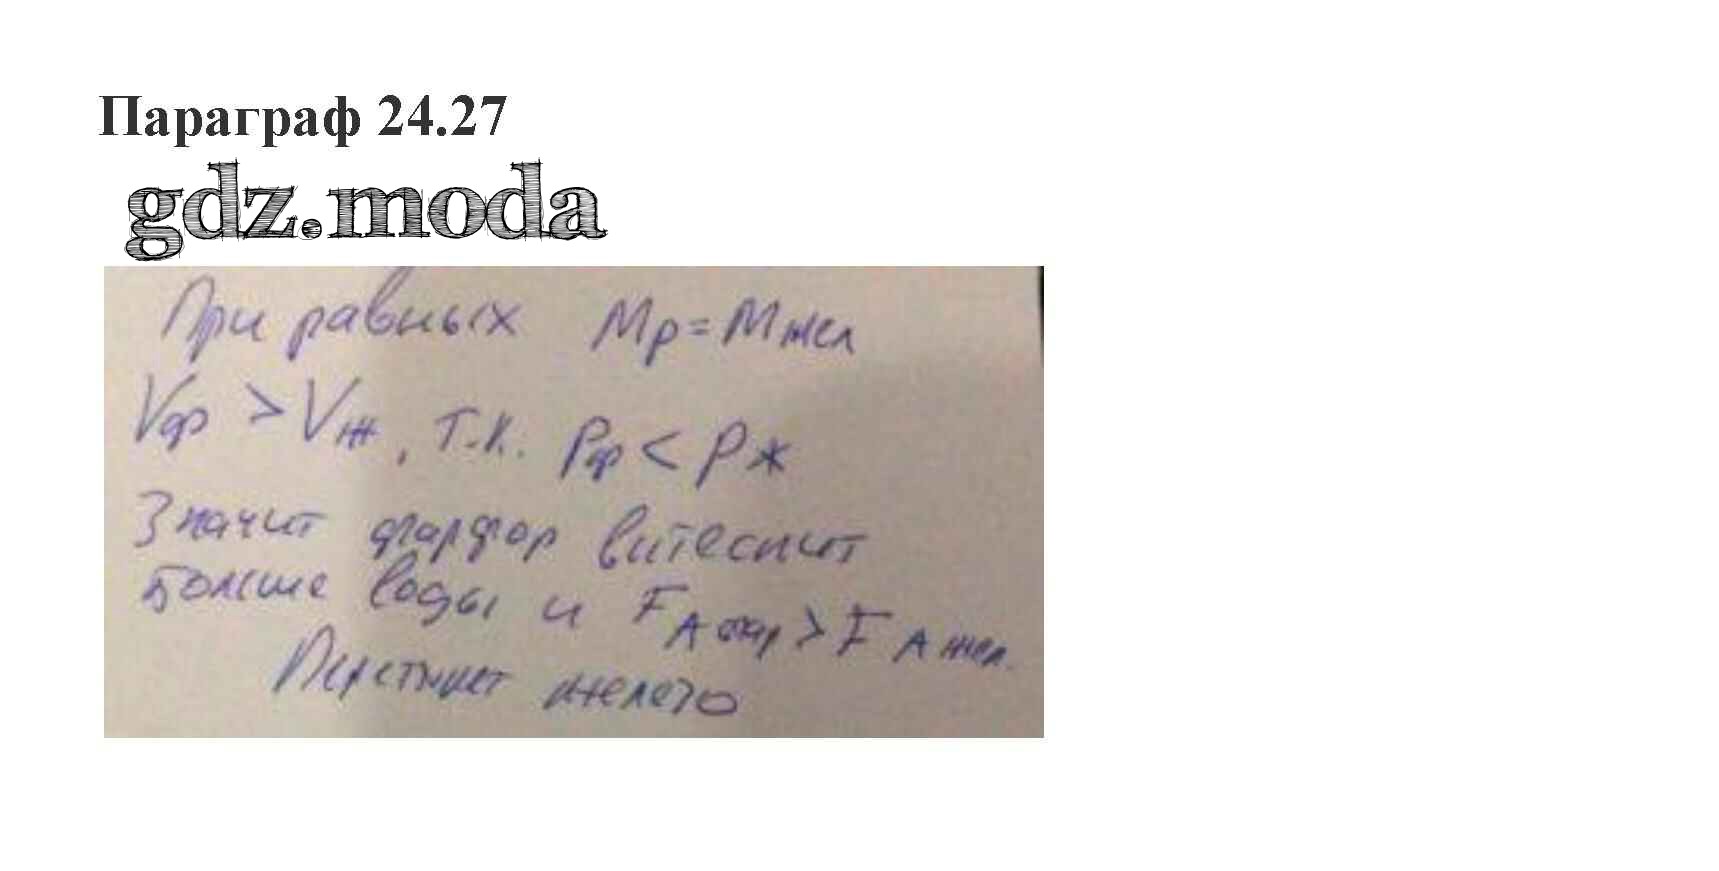 Параграф 24.27
gdz.moda
При равных Mр = Mжел
Vф > Vж, т.к. ρф < ρж
Значит фарфор витеснит
больше воды и FА фар > FА жел.
Перетянет железо